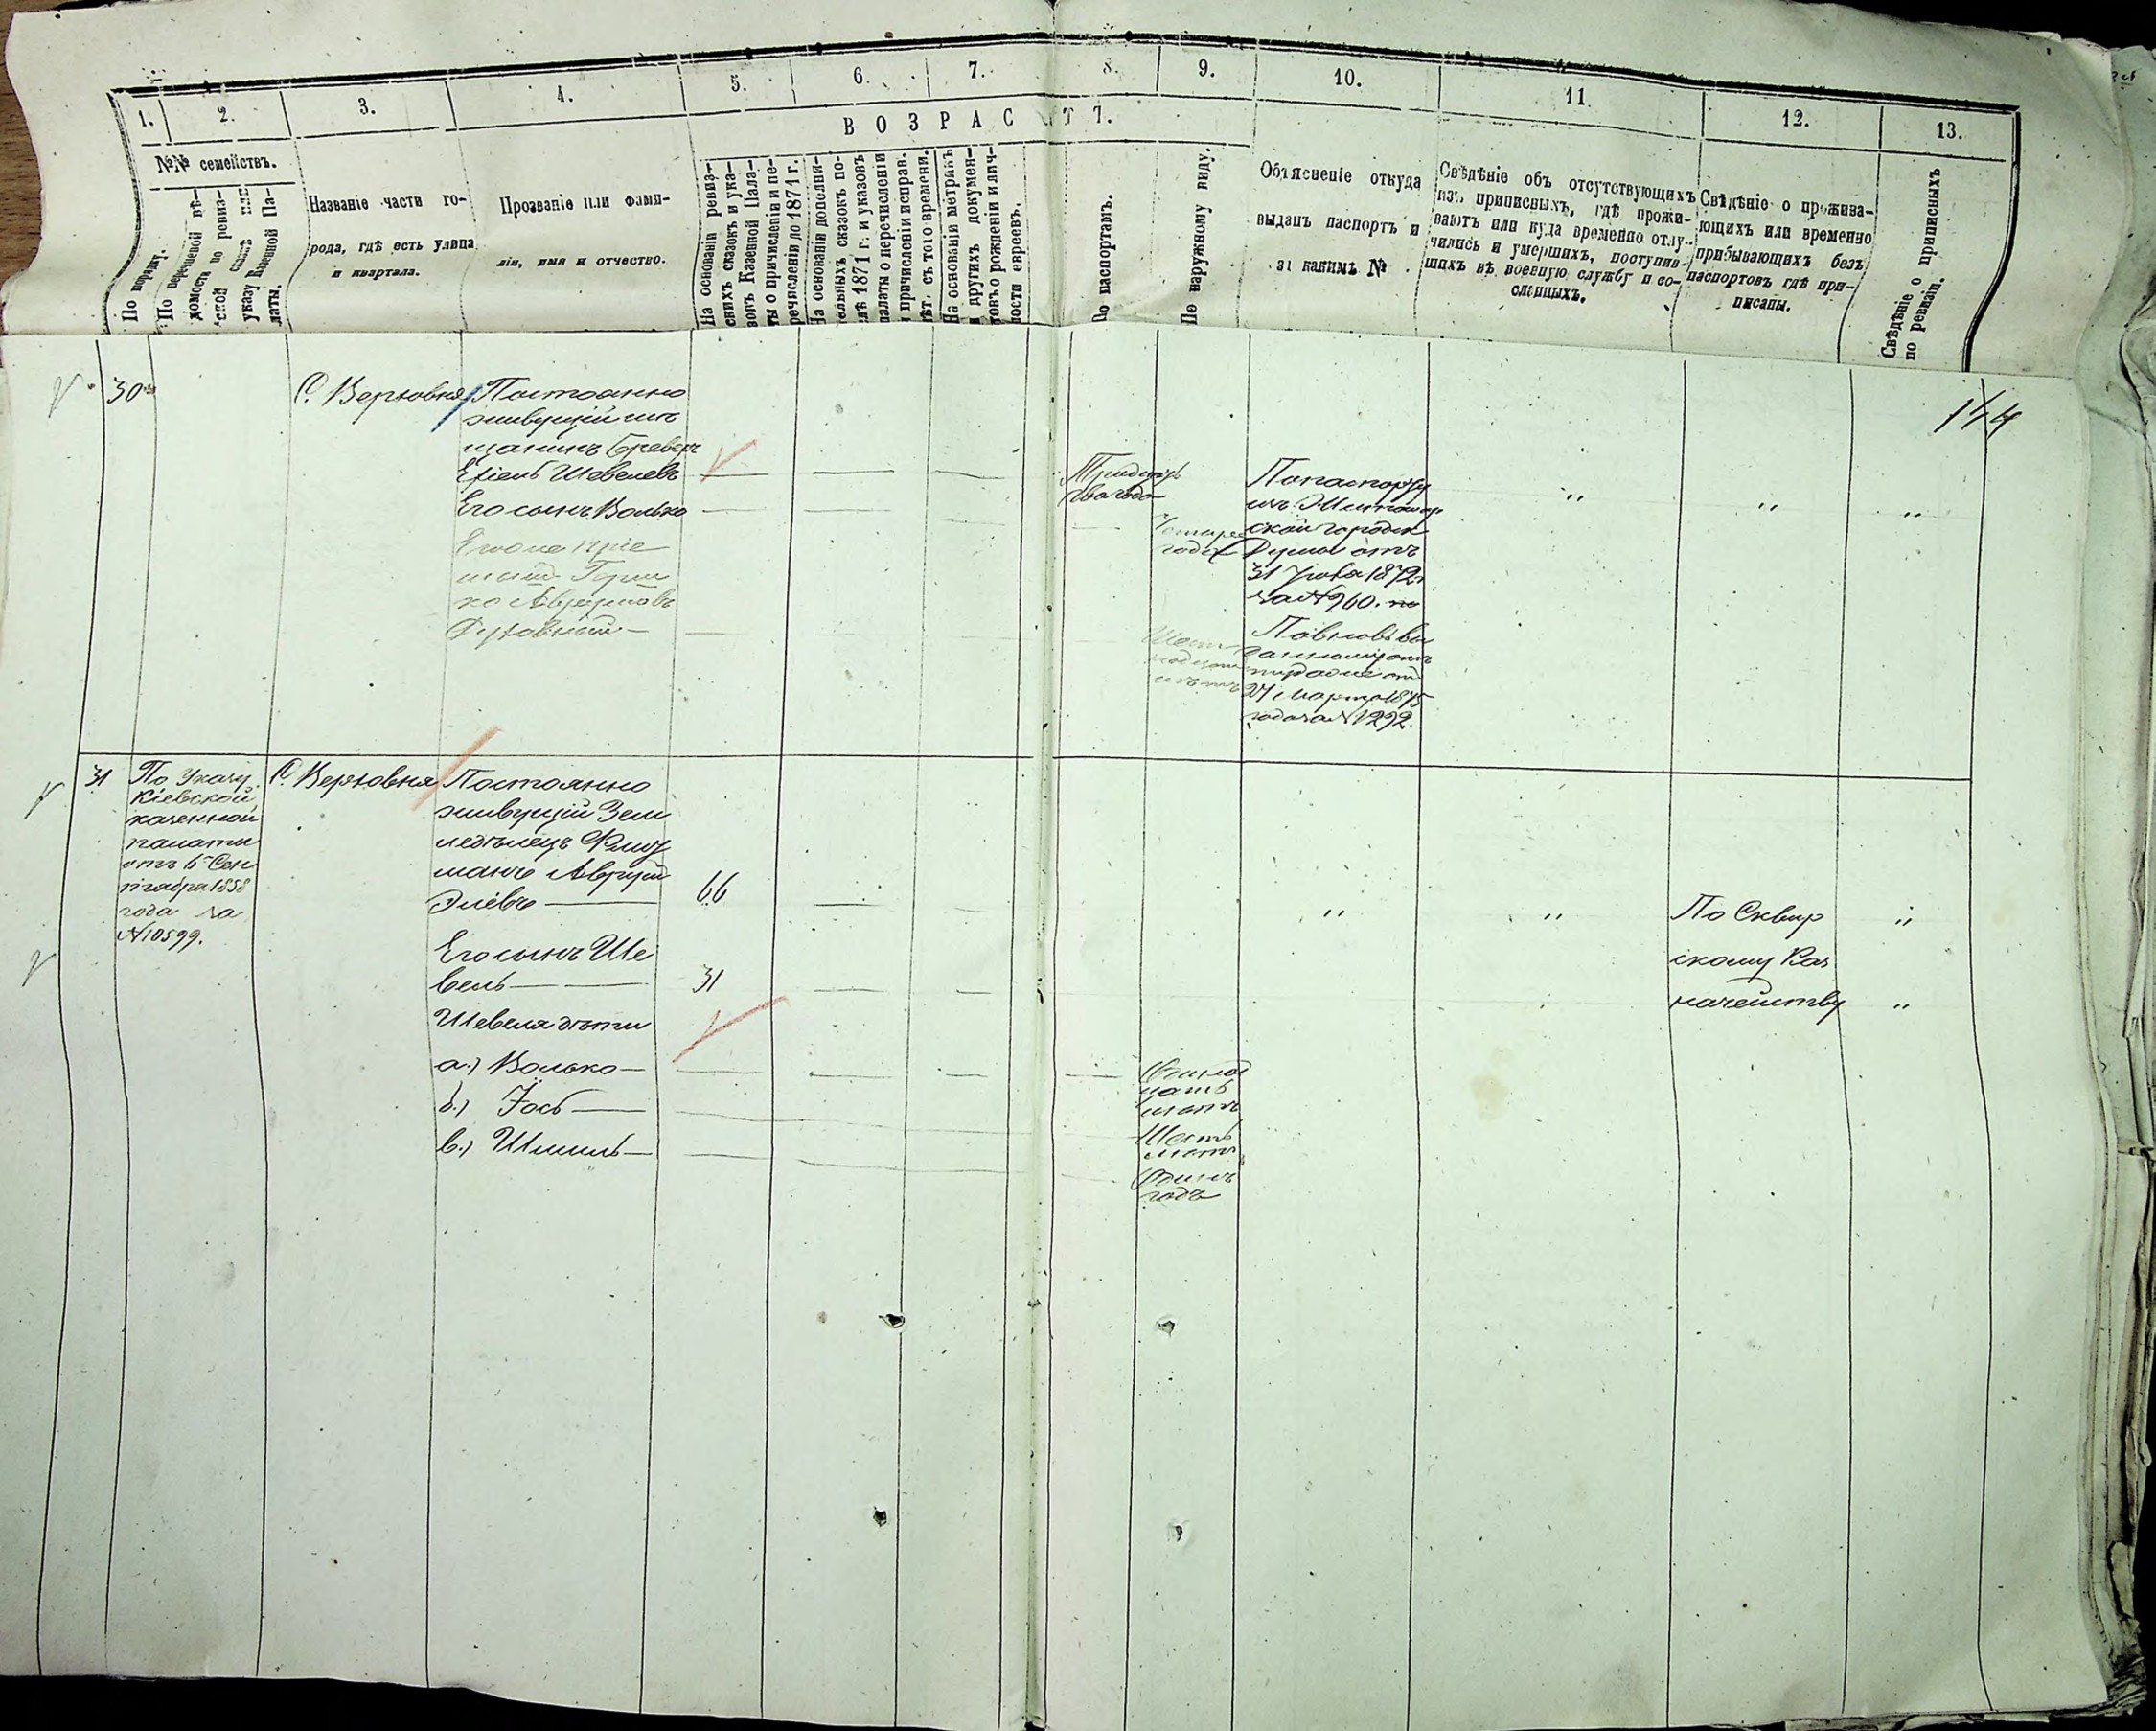 1.
2.
3.
4.
5.
6.
7.
8.
9.
10.
11.
12.
13.
№№ семействъ.
По порядку.
По перечневой вѣ-
домости по ревиз-
ской сказкѣ или
указу Казенной Па-
латы.
Названіе части го-
рода, гдѣ есть улица
и квартала.
Прозваніе или фами-
лія, имя и отчество.
В О З Р А С Т Ъ.
На основаніи ревиз-
скихъ сказокъ и ука-
зовъ Казенной Пала-
ты о причисленіи и пе-
речисленіи до 1871 г.
На основаніи дополни-
тельныхъ сказокъ по-
слѣ 1871 г. и указовъ
палаты о перечисленіи
и причисленіи исправ.
лѣт. съ того времени.
На основаніи метрикъ
и другихъ докумен-
товъ о рожденіи и лич-
ности евреевъ.
По паспортамъ.
По наружному виду.
Объясненіе откуда
выданъ паспортъ и
за какимъ №
Свѣдѣніе объ отсутствующихъ
изъ приписныхъ, гдѣ прожи-
ваютъ или куда временно отлу-
чились и умершихъ, поступив-
шихъ въ военную службу и со-
сланныхъ.
Свѣдѣніе о прожива-
ющихъ или временно
прибывающихъ безъ
паспортовъ гдѣ при-
писаны.
Свѣдѣніе о приписныхъ
по ревизіи.
144
30
С. Верховня
Постоянно
живущій мѣ
щанинъ
Шевелевъ
Его сынъ Волько
Его же пріе
мышъ
Тридцать
два года
Четыре
года
По паспорту
изъ
ской городск
Думы отъ
31 1872 г
за №960.
вы
данному
27 Марта 1875
года за №1292.
"
"
"
31
По Указу
Кіевской
казенной
палаты
отъ 6 Сен
тября 1858
года за
№10599.
С. Верховня
Постоянно
живущій Зем
ледѣлецъ
манъ
66
"
"
По Сквир
"
Его сынъ Ше
скому Каз
вель
31
начейству
"
Шевеля дѣти
а.) Волько
лѣтъ
б.) Іось
Шесть
лѣтъ
в.) Шмиль
Одинъ
годъ